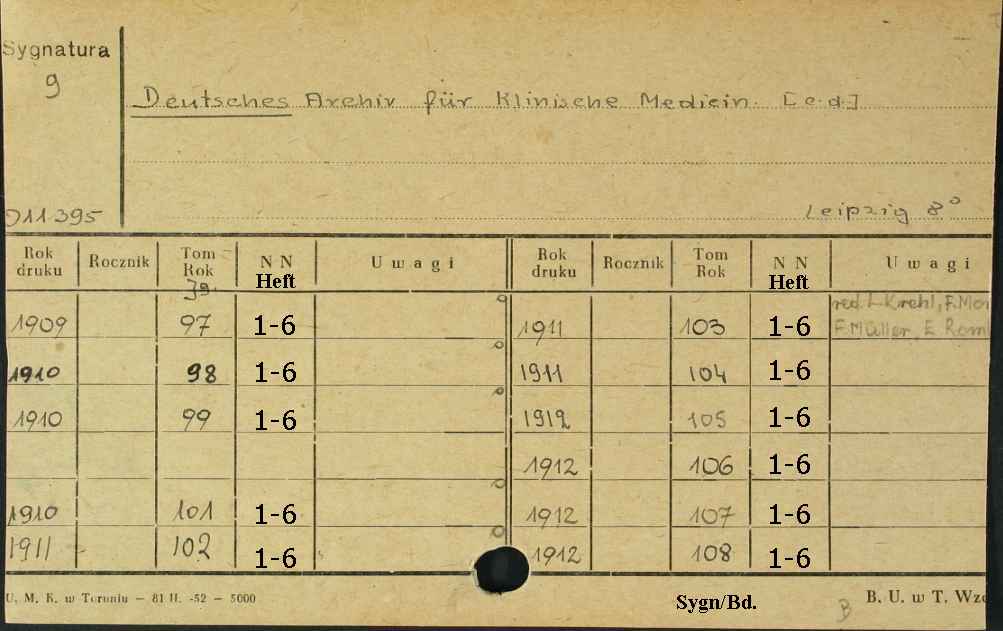 Sygnatura
9
Deutsches Archiv für Klinische Medicin. [c.d.]
011395
Leipzig 8°
Rok druku Rocznik Tom Rok Jg. N N Heft Uwagi Rok druku Rocznik Tom Rok N N Heft Uwagi
red. L. Krehl, F. Mor
1909 97 1-6 1911 103 1-6 F. Müller, E Rom
1910 98 1-6 1911 104 1-6
1910 99 1-6 1912 105 1-6
1912 106 1-6
1910 101 1-6 1912 107 1-6
1911 102 1-6 1912 108 1-6
U. M. K. w Toruniu — 81 II. -52 — 5000
Sygn/Bd.
B
B. U. w T. Wzo